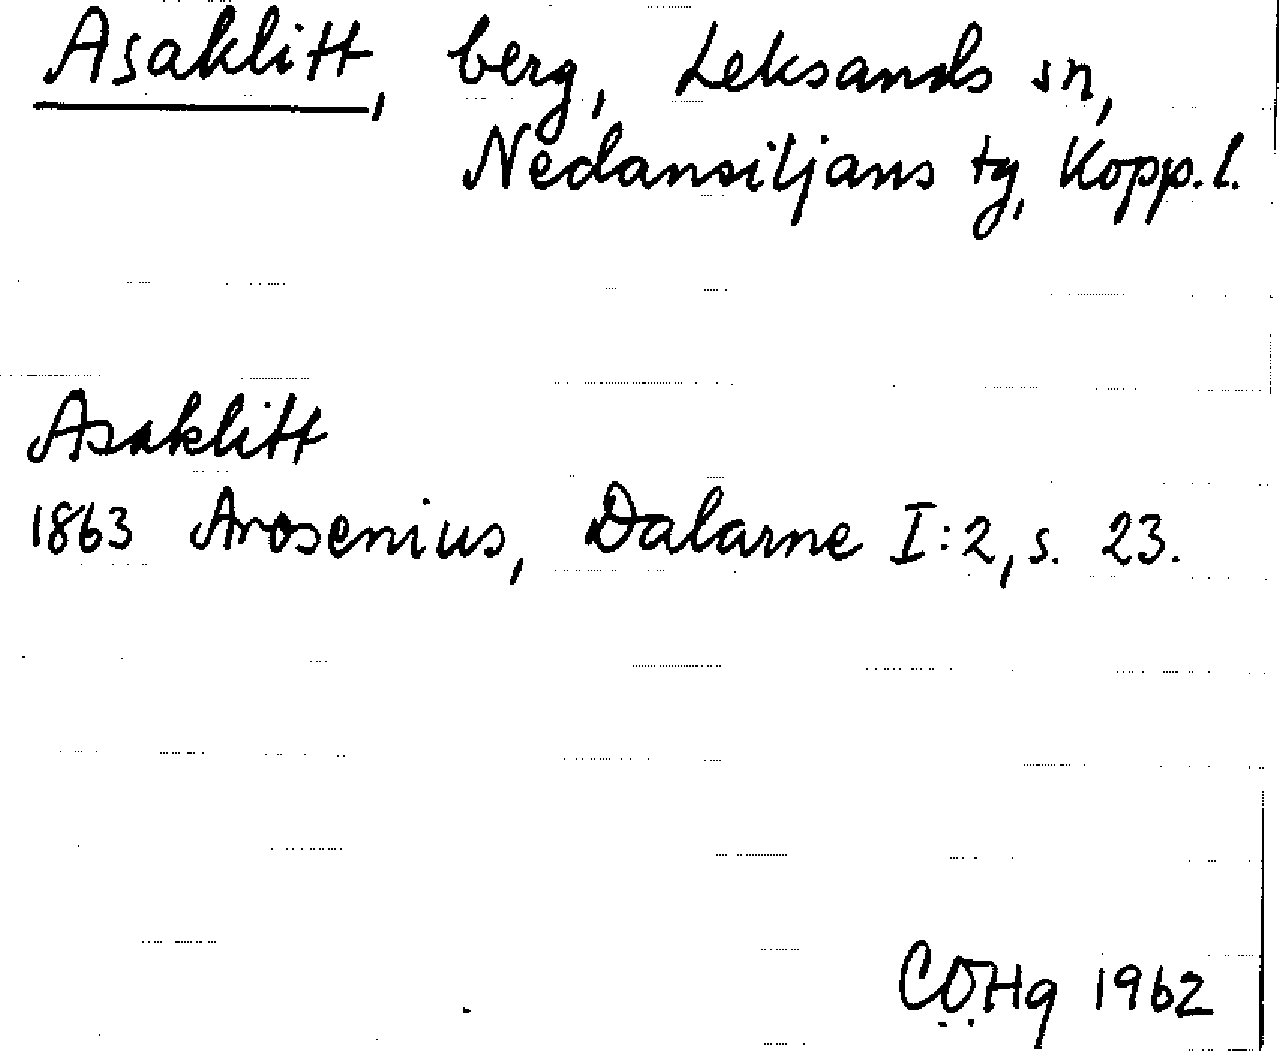 Asaklitt, berg, Leksands sn,
Nedansiljans tg, Kopp. l.
Asaklitt
1863 Arosenius, Dalarne I:2, s. 23.
COHg 1962